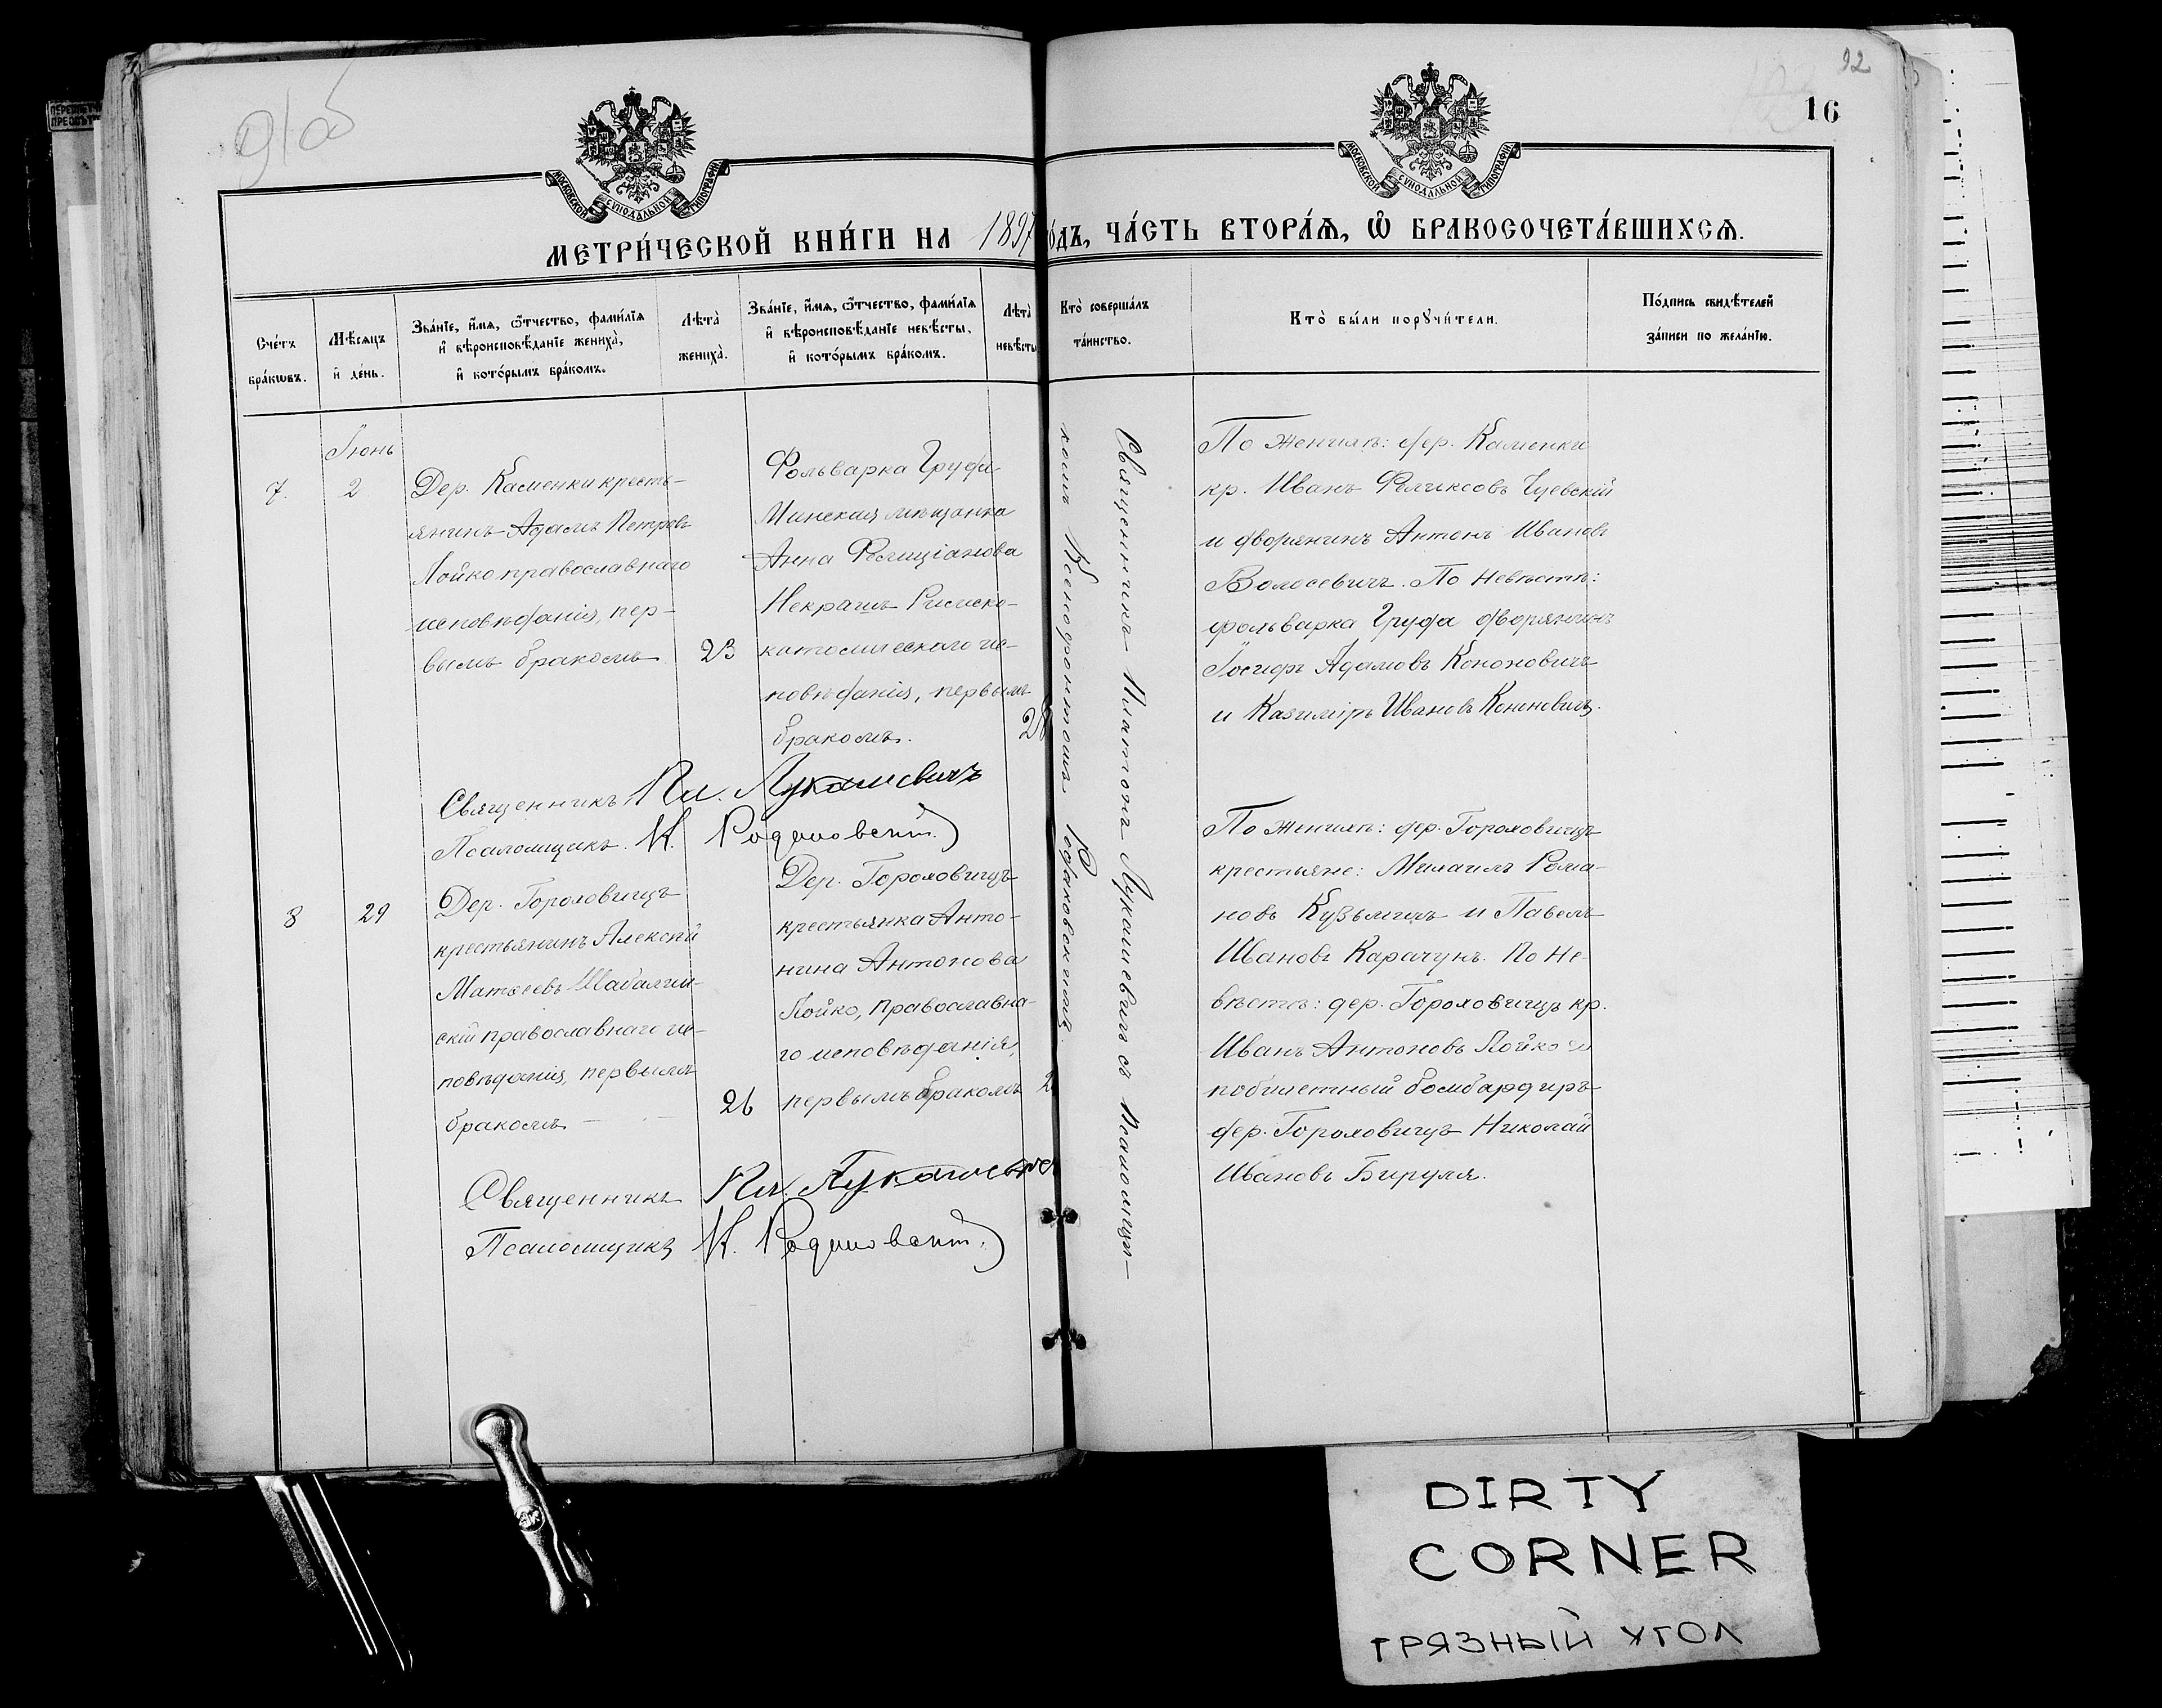 91об
92
16
МОСКОВСКОЙ СѴНОДАЛЬНОЙ ТИПОГРАФІИ
МОСКОВСКОЙ СѴНОДАЛЬНОЙ ТИПОГРАФІИ
МЕТРИ́ЧЕСКОЙ КНИ́ГИ НА 1897 ГО́ДЪ, ЧА́СТЬ ВТОРА́Ѧ, Ѽ БРАКОСОЧЕТА́ВШИХСѦ.
Сче́тъ бра́кѡвъ.
Мѣ́сяцъ и҆ де́нь.
Зва́нїе, и҆́мѧ, ѻ҆́тчество, фами́лїѧ
и҆ вѣроисповѣ́данїе жениха̀,
и҆ кото́рымъ бра́комъ.
Лѣта̀ жениха̀.
Зва́нїе, и҆́мѧ, ѻ҆́тчество, фами́лїѧ
и҆ вѣроисповѣ́данїе невѣ́сты,
и҆ кото́рымъ бра́комъ.
Лѣта̀ невѣ́сты
Кто̀ соверша́лъ та́инство.
Кто̀ бы́ли порꙋчи́тели.
По́дпись свидѣ́телей
за́писи по жела́нїю.
7.
Іюнь
2
Дер. Каменки кресть-
янинъ Адамъ Петровъ
Лойко православнаго
исповѣданія, пер-
вымъ бракомъ
23
Фольварка Груда
Минская мѣщанка
Анна Фелиціанова
Некрашъ Римско-
католическаго ис-
повѣданія, первымъ
бракомъ.
Священникъ Платонъ Лукашевичъ съ Псаломщи-
комъ Ксенофонтомъ
По женихѣ: дер. Каменки
кр. Иванъ Феликсовъ
и дворянинъ Антонъ Ивановъ
Волосевичъ. По невѣстѣ:
фольварка Груда дворянинъ
Іосифъ Адамовъ Кононовичъ
и Казиміръ Ивановъ Кононовичъ.
Священникъ Пл. Лукашевичъ
Псаломщикъ К.
8
29
Дер. Гороховищъ
крестьянинъ Алексѣй
Матѳеевъ
православнаго ис-
повѣданія, первымъ
бракомъ
26
Дер. Гороховищъ
крестьянка Анто-
нина Антонова
Лойко, православна-
го исповѣданія,
первымъ бракомъ
По женихѣ: дер. Гороховищъ
крестьяне: Михаилъ Рома-
новъ Кузьмичъ и Павелъ
Ивановъ Карачунъ. По не-
вѣстѣ: дер. Гороховищъ кр.
Иванъ Антоновъ Лойко и
бомбардиръ
дер. Гороховищъ Николай
Ивановъ Бируля.
Священникъ Пл. Лукашевичъ
Псаломщикъ К.
DIRTY
CORNER
ГРЯЗНЫЙ УГОЛ